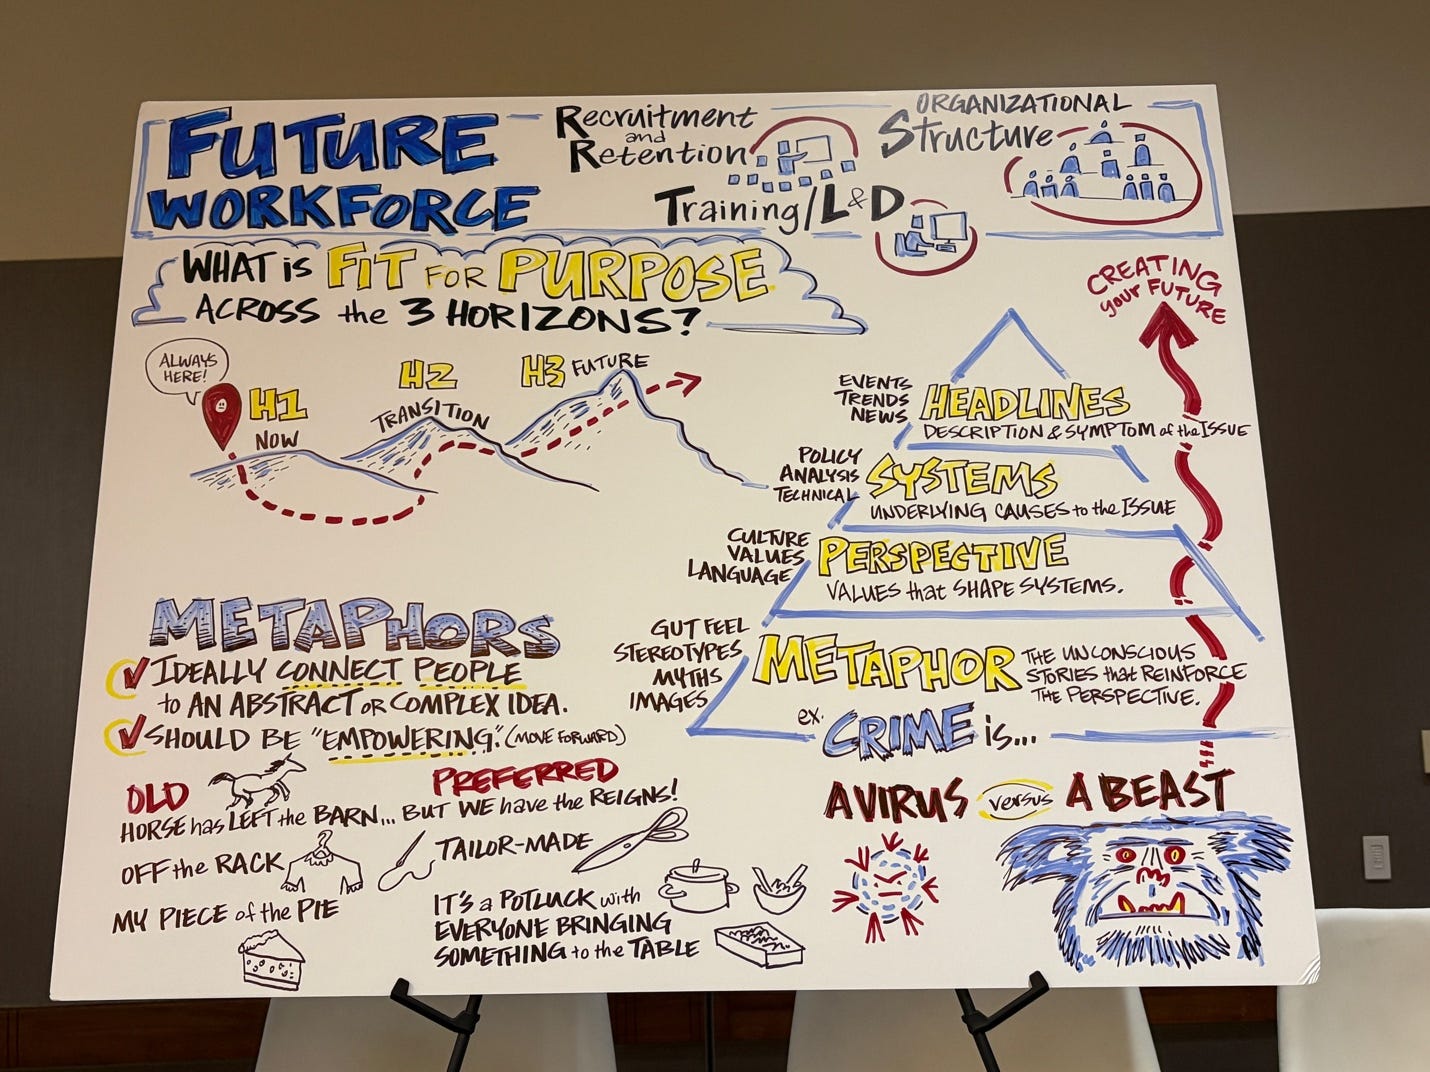 FUTURE
WORKFORCE
Recruitment
and
Retention
Training/L&D
ORGANIZATIONAL
Structure
WHAT is FIT FOR PURPOSE
ACROSS the 3 HORIZONS?
ALWAYS
HERE!
H1
NOW
H2
TRANSITION
H3 FUTURE
CREATING
your FUTURE
EVENTS
TRENDS
NEWS
HEADLINES
DESCRIPTION & SYMPTOM of the ISSUE
POLICY
ANALYSIS
TECHNICAL
SYSTEMS
UNDERLYING CAUSES to the ISSUE
CULTURE
VALUES
LANGUAGE
PERSPECTIVE
VALUES that SHAPE SYSTEMS.
GUT FEEL
STEREOTYPES
MYTHS
IMAGES
METAPHOR
THE UNCONSCIOUS
STORIES that REINFORCE
THE PERSPECTIVE.
ex. CRIME is...
A VIRUS versus A BEAST
METAPHORS
IDEALLY CONNECT PEOPLE
to AN ABSTRACT or COMPLEX IDEA.
SHOULD BE "EMPOWERING." (MOVE FORWARD)
OLD
PREFERRED
HORSE has LEFT the BARN... BUT WE have the REIGNS!
OFF the RACK
TAILOR-MADE
MY PIECE of the PIE
IT'S a POTLUCK with
EVERYONE BRINGING
SOMETHING to the TABLE